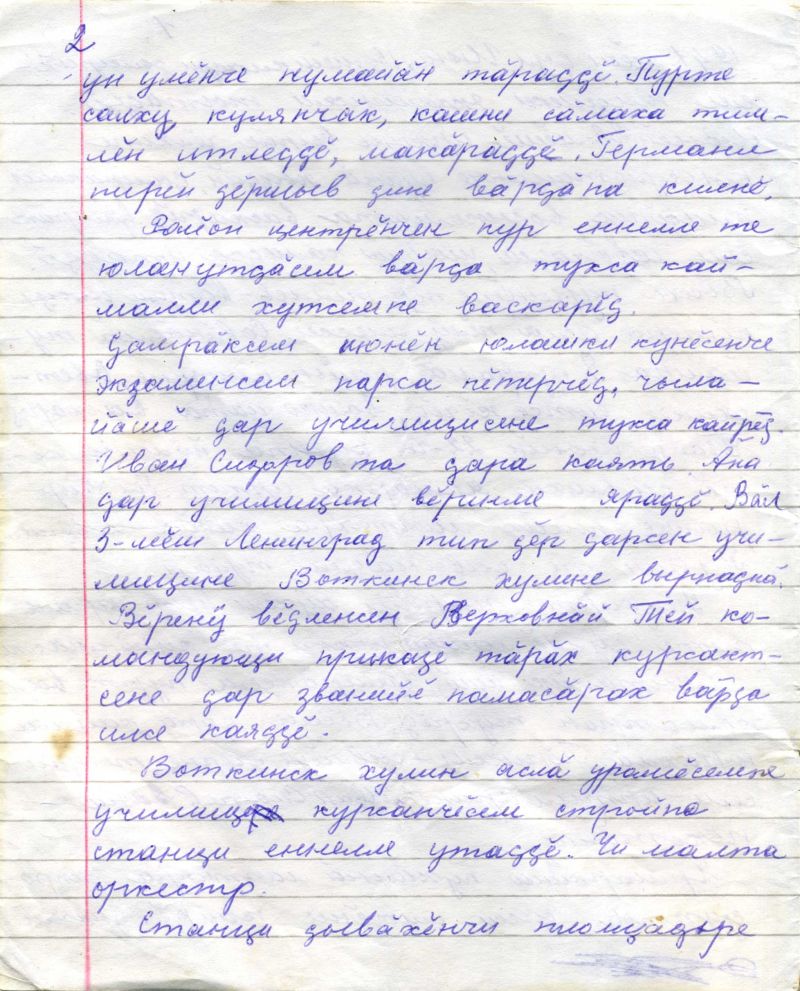 2
ун умӗнче нумайӑн тӑраҫҫӗ. Пурте
салху, кулянчӑк, кашни сӑмаха тим-
лӗн итлеҫҫӗ, макӑраҫҫӗ. Германи
пирӗн ҫӗршыв ҫине вӑрҫӑпа килнӗ.
Район центрӗнчен пур еннелле те
юланутҫӑсем вӑрҫа тухса кай-
малли хутсемпе васкарӗҫ.
Ҫамрӑксем июнӗн юлашки кунӗсенче
экзаменсем парса пӗтерчӗҫ, чыла-
йӑшӗ ҫар училищисене тухса кайрӗҫ.
Иван Сидоров та ҫара каять. Ӑна
ҫар училищине вӗренме яраҫҫӗ. Вӑл
3-мӗш Ленинград тип ҫӗр ҫарӗсен учи-
лищине Воткинск хулине вырнаҫнӑ.
Вӗренӳ вӗҫленсен Верховнӑй Тӗп ко-
мандующи приказӗ тӑрӑх курсант-
сене ҫар званийӗ памасӑрах вӑрҫа
илсе каяҫҫӗ.
Воткинск хулин аслӑ урамӗсемпе
училищ курсанчӗсем стройпа
станци еннелле утаҫҫӗ. Чи малта
оркестр.
Станци ҫывӑхӗнчи площадьре